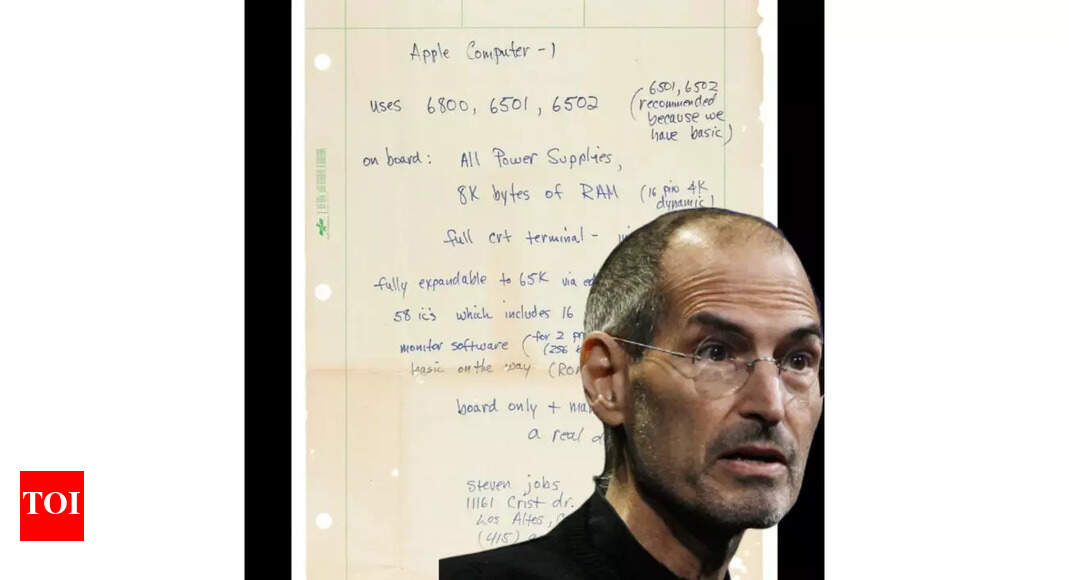 Apple Computer-1
uses 6800, 6501, 6502
(6501, 6502
recommended
because we
have basic)
on board: All Power Supplies,
8K bytes of RAM (16 pin 4K
dynamic)
full crt terminal -
fully expandable to 65K via
58 ic's which includes 16
monitor software (for 2
(256
basic on the way
board only +
a real
Steven jobs
11161 Crist dr.
Los Altos,
(415)
TOI